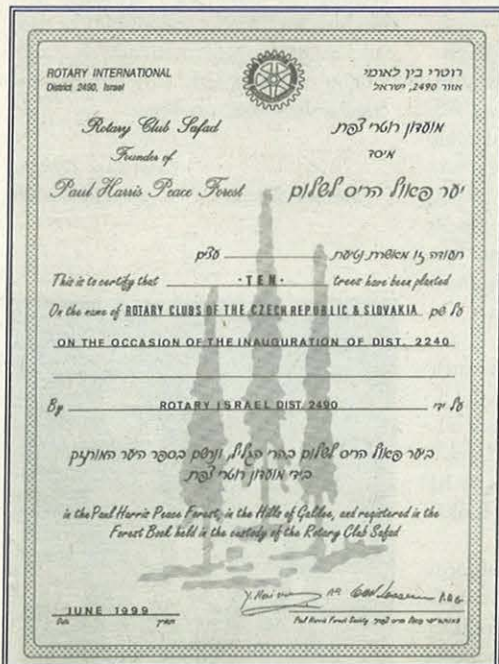 ROTARY INTERNATIONAL
District 2490, Israel
רוטרי בין לאומי
אזור 2490, ישראל
Rotary Club Safad
מועדון רוטרי צפת
Founder of
מיסד
Paul Harris Peace Forest
יער פאול הריס לשלום
תעודה זו מאשרת נטיעת עצים
This is to certify that - TEN - trees have been planted
On the name of ROTARY CLUBS OF THE CZECH REPUBLIC & SLOVAKIA על שם
ON THE OCCASION OF THE INAUGURATION OF DIST. 2240
By ROTARY ISRAEL DIST. 2490 על ידי
ביער פאול הריס לשלום בהרי הגליל, ונרשם בספר היער המוחזק
בידי מועדון רוטרי צפת
in the Paul Harris Peace Forest, in the Hills of Galilee, and registered in the
Forest Book held in the custody of the Rotary Club Safad
JUNE 1999
Date תאריך
Paul Harris Forest Society